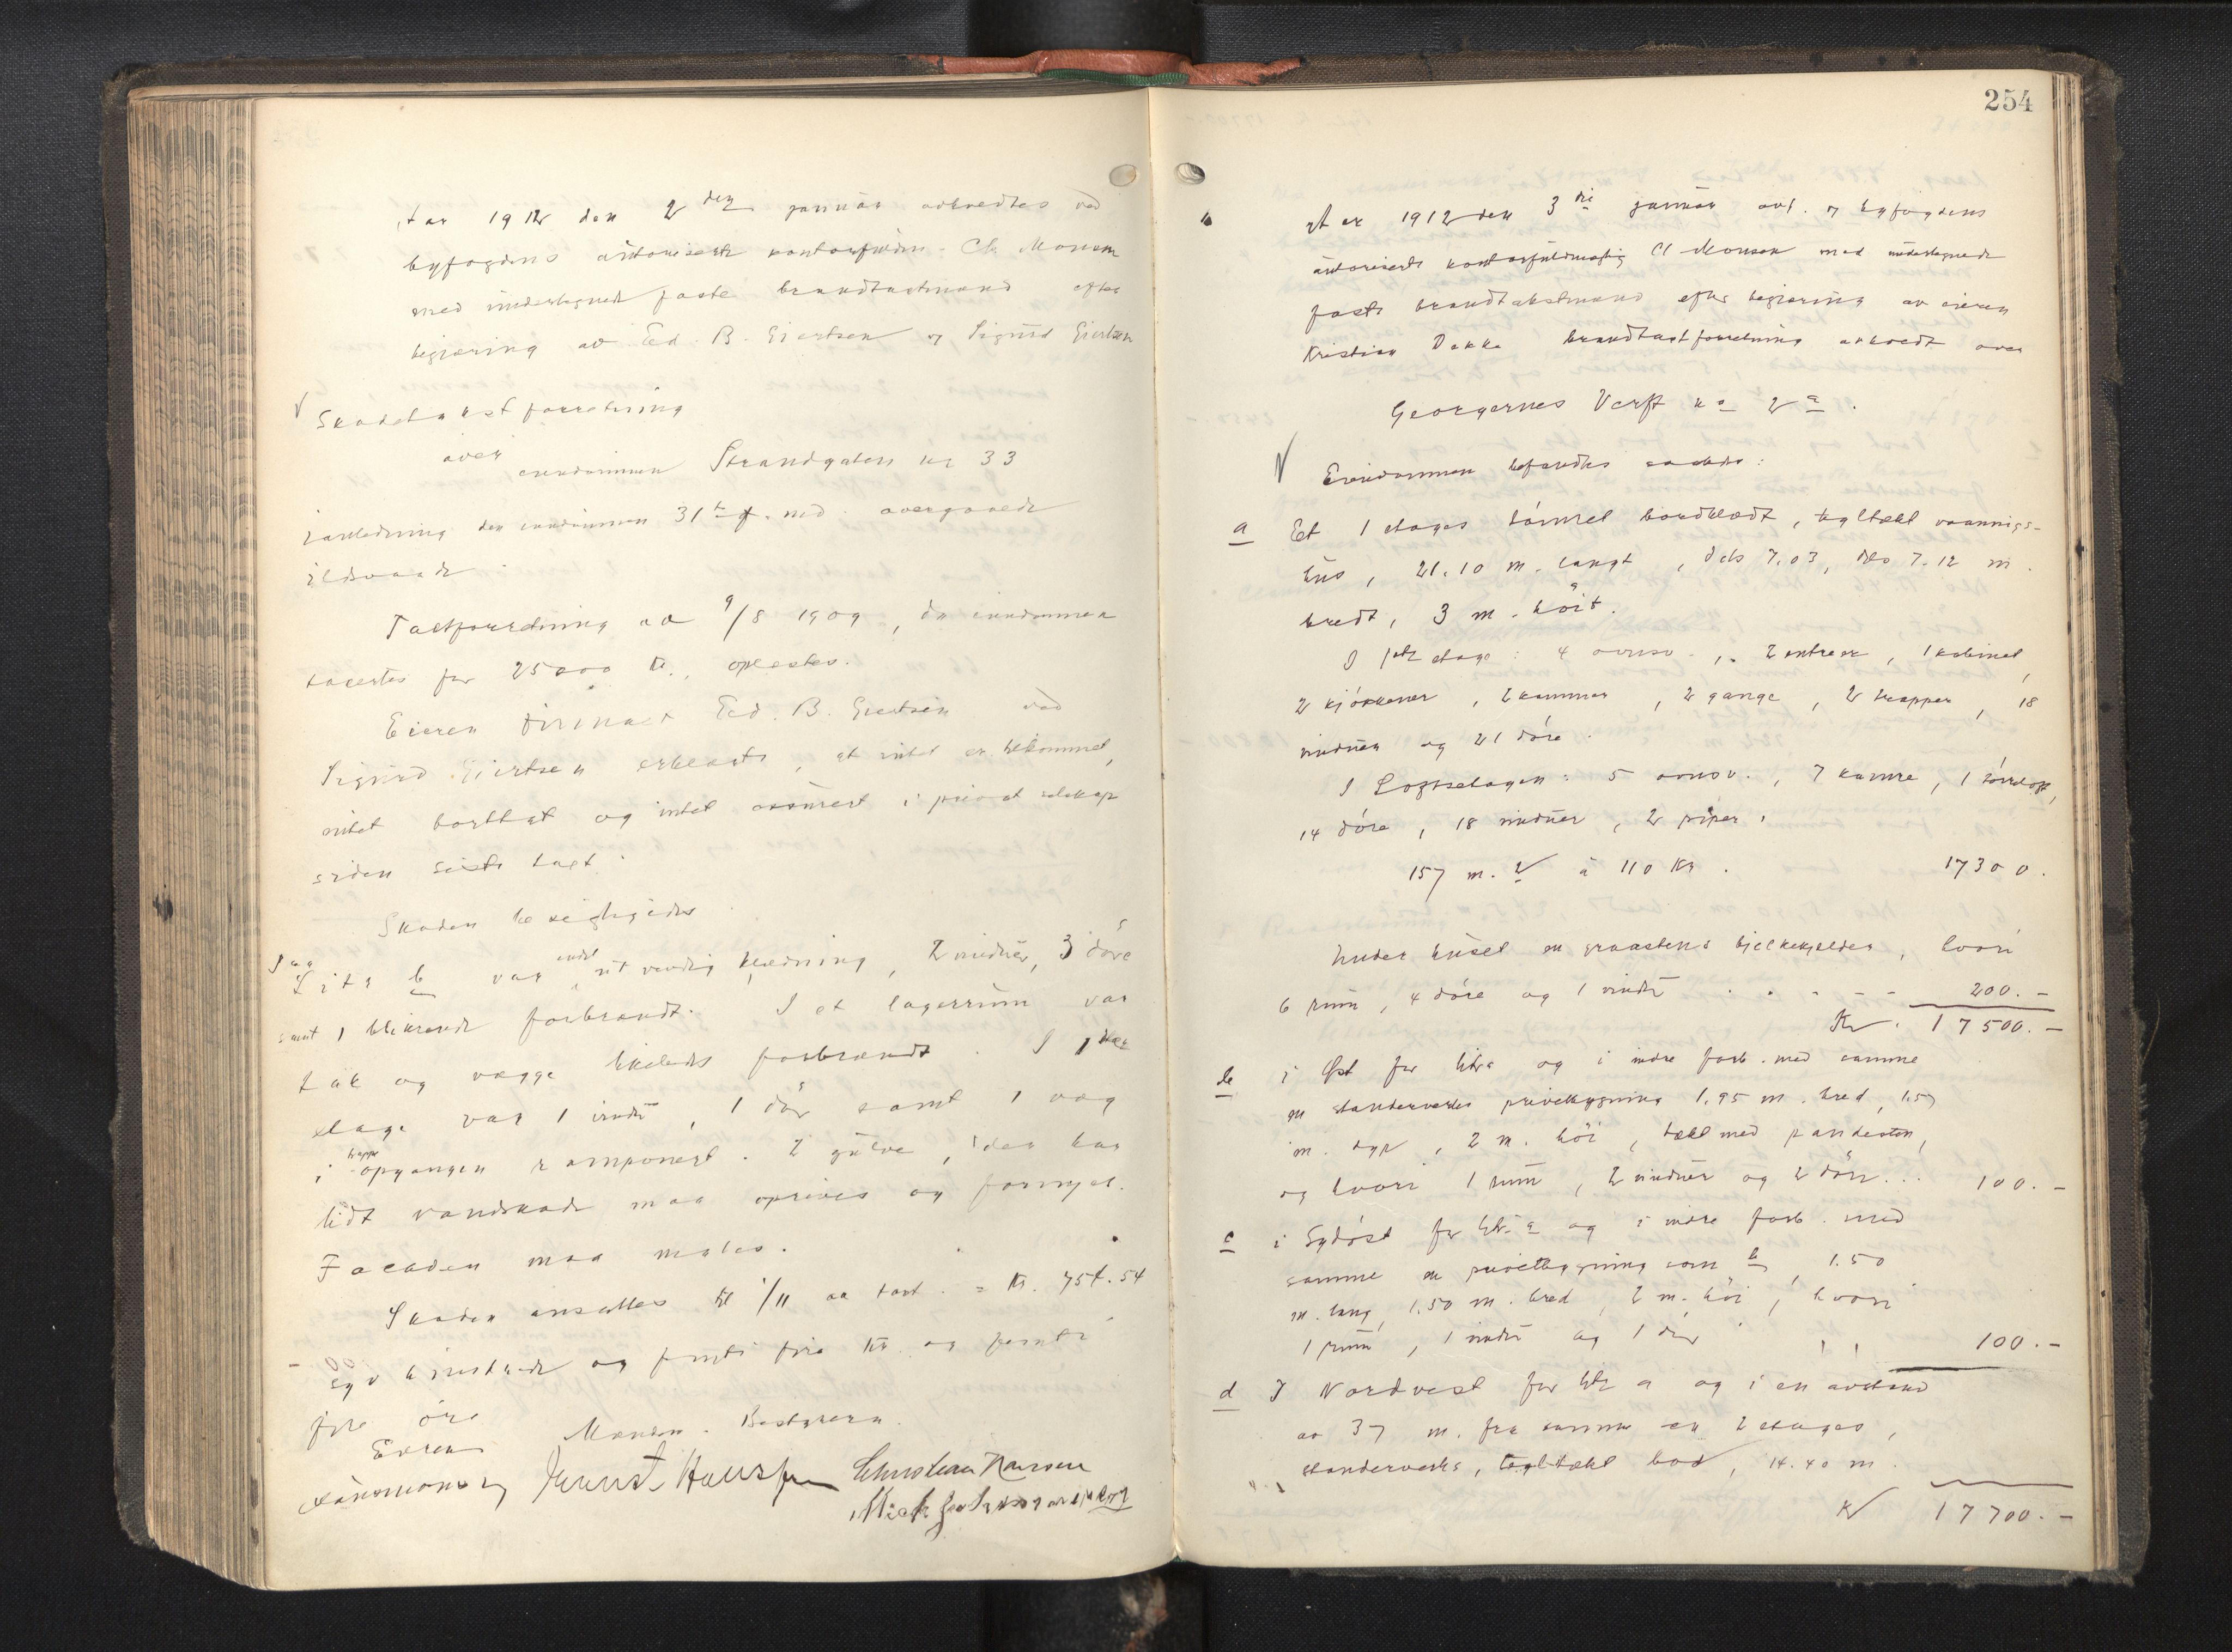 Aar 1912 den 2den januar avholdtes ved
byfogdens autoriserte kontorfuldm. Ch. Monsen
med undertegnede faste brandtakstmænd efter
begjæring av Ed. B. Giertsen og Sigurd Giertsen
Skadetakstforretning
over
eiendommen Strandgaten nr 33
i anledning den eiendommen 31te f. md. overgaaede
ildsvaade.
Takstforretning av 9/8 1909, da eiendommen
taxertes for 25000 kr., oplæstes.
Eieren firmaet Ed. B. Giertsen ved
Sigurd Giertsen erklærte, at intet er tilkommet,
intet borttat og intet assurert i privat selskap
siden sidste takst.
Skaden besigtigedes.
Paa
Litr b var endel utvendig klædning, 2 vinduer, 3 døre
samt 1 blikrende forbrændt. I et lagerrum var
tak og vægge likeledes forbrændt. I 1ste
etage var 1 vindu, 1 dør samt 1 væg
i trappeopgangen ramponert. 2 gulve, der har
lidt vandskade maa oprives og fornyes.
Facaden maa males.
Skaden ansattes til 1/11 aa takst. = Kr. 754.54
syv hundrede og femti fire kr. og femti
fire øre
Monsen. Bestyreren.
Eieren
Ernst Christian Hansen

254
Aar 1912 den 3die januar avh. og byfogdens
autoriserte kontorfuldmægtig Ch Monsen med undertegnede
faste brandtakstmænd efter begjæring av eieren
Kristian Dekke brandtakstforretning avholdt over
Georgernes Verft no 2a.
Eiendommen befandtes saaledes:
a Et 1 etages tømret bordklædt, tegltækt vaanings-
hus, 21.10 m. langt, dels 7.03, dels 7.12 m.
bredt, 3 m. høit.
I 1ste etage: 4 ovnsv., 2 entreer, 1 kabinet,
2 kjøkkener, 2 kammer, 2 gange, 2 trapper, 18
vinduer og 21 døre.
I Loftsetagen: 5 ovnsv., 7 kamre, 1 tørreloft,
14 døre, 18 vinduer, 2 piper.
157 m.2 à 110 Kr. 17300.
Under huset en graastens bjelkekjelder, hvori
6 rum, 4 døre og 1 vindu . . - - - 200.-
Kr. 17500.-
b i Øst for litr a og i indre forb. med samme
en standerverks privetbygning 1.95 m. bred, 1.57
m. dyp, 2 m. høi, tækt med pandesten,
og hvori 1 rum, 2 vinduer og 2 døre... 100.-
c i Sydøst for litr a og i indre forb. med
samme en privetbygning som b, 1.50
m. lang, 1.50 m. bred, 2 m. høi, hvori
1 rum, 1 vindu og 1 dør 100.-
d I Nordvest for litr a og i en avstand
av 37 m. fra samme en 2 etages,
standerverks, tegltækt bod, 14.40 m.
Kr 17700.-